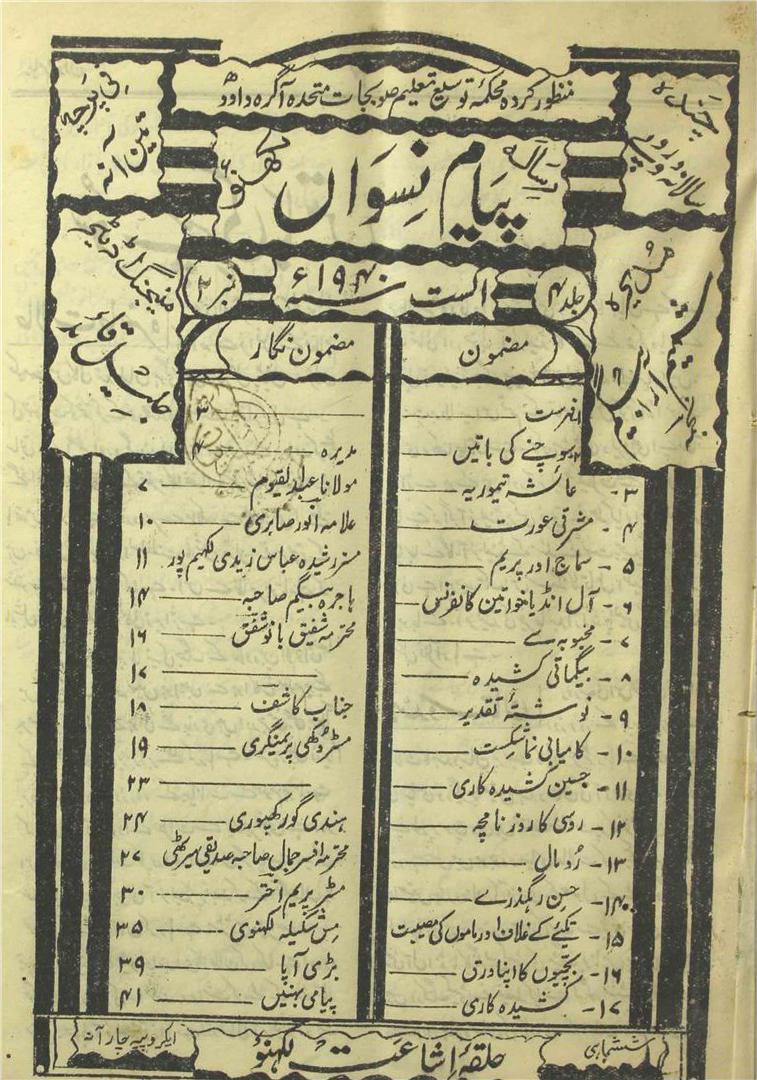 منظور کردہ محکمۂ توسیع تعلیم صوبجات متحدہ آگرہ و اودھ
چندہ
سالانہ دو روپے
فی پرچہ
تین آنہ
رسالہ
پیام نسواں
لکھنؤ
مدیرہ
مینیجنگ ایڈیٹر
جلد ۴
اگست سنہ ۱۹۴۰ء
نمبر ۲
مضمون
مضمون نگار
فہرست ۳
سوچنے کی باتیں مدیرہ ۴
۳- عائشہ تیموریہ مولانا عبدالقیوم ۷
۴- مشرقی عورت علامہ انور صابری ۱۰
۵- سماج اور پریم مسز رشیدہ عباس زیدی لکھیم پور ۱۱
۶- آل انڈیا خواتین کانفرنس ہاجرہ بیگم صاحبہ ۱۴
۷- محبوبہ سے محترمہ شفیق بانو شفق ۱۶
۸- بیگماتی کشیدہ ۱۷
۹- نوشتۂ تقدیر جناب کاشف ۱۸
۱۰- کامیابی نما شکست مسٹر دُکھی پریمنگری ۱۹
۱۱- حسین کشیدہ کاری ۲۳
۱۲- روسی کا روزنامچہ ہندی گورکھپوری ۲۴
۱۳- رُومال محترمہ افسر جمال صاحبہ صدیقی میرٹھی ۲۷
۱۴- حسن رہگذرے مسٹر پریم اختر ۳۰
۱۵- تکیئے کے غلاف اور ماموں کی مصیبت مس شکیلہ لکھنوی ۳۵
۱۶- بچیوں کا اپنا ورق بڑی آپا ۳۹
۱۷- کشیدہ کاری پیامی بہنیں ۴۱
ششماہی
حلقۂ اشاعت لکھنؤ
ایکروپیہ چار آنہ